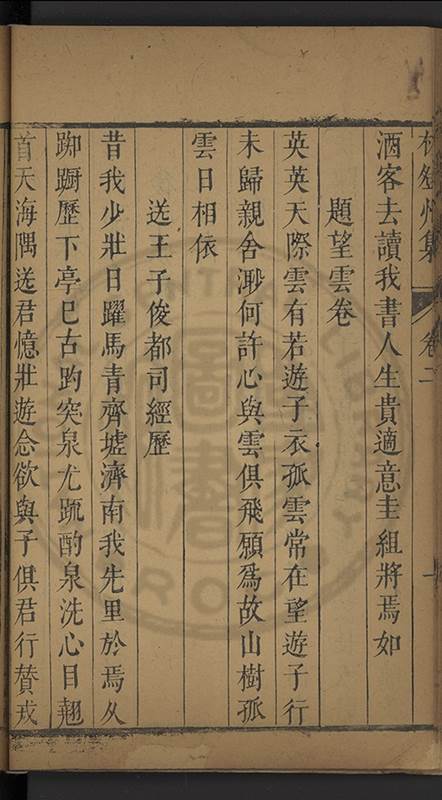 集 卷二
酒客去讀我書人生貴適意圭組將焉如
題望雲卷
英英天際雲有若遊子衣孤雲常在望遊子行
未歸親舍渺何許心與雲俱飛願爲故山樹孤
雲日相依
送王子俊都司經歷
昔我少壯日躍馬青齊墟濟南我先里於焉久
踟蹰歷下亭巳古趵突泉尤䟽酌泉洗心目翹
首天海隅送君憶壯遊念欲與子俱君行贊戎